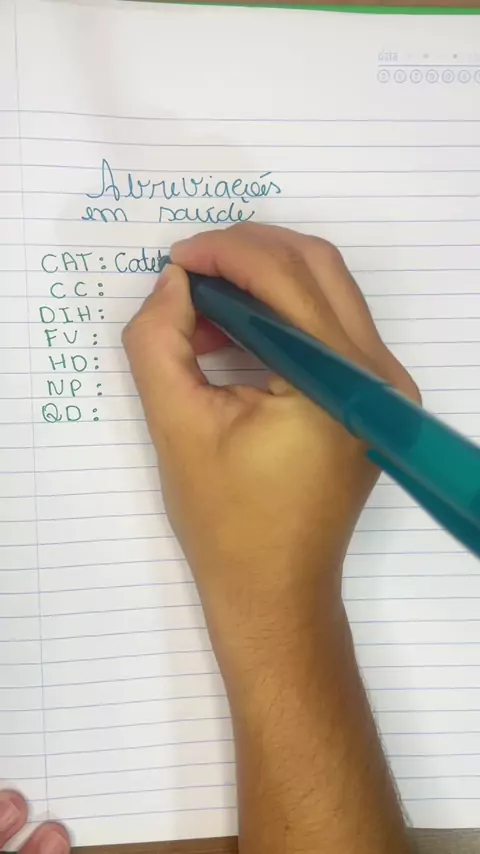 Abreviações
em saúde
CAT: Cate
CC:
DIH:
FV:
HD:
NP:
QD: